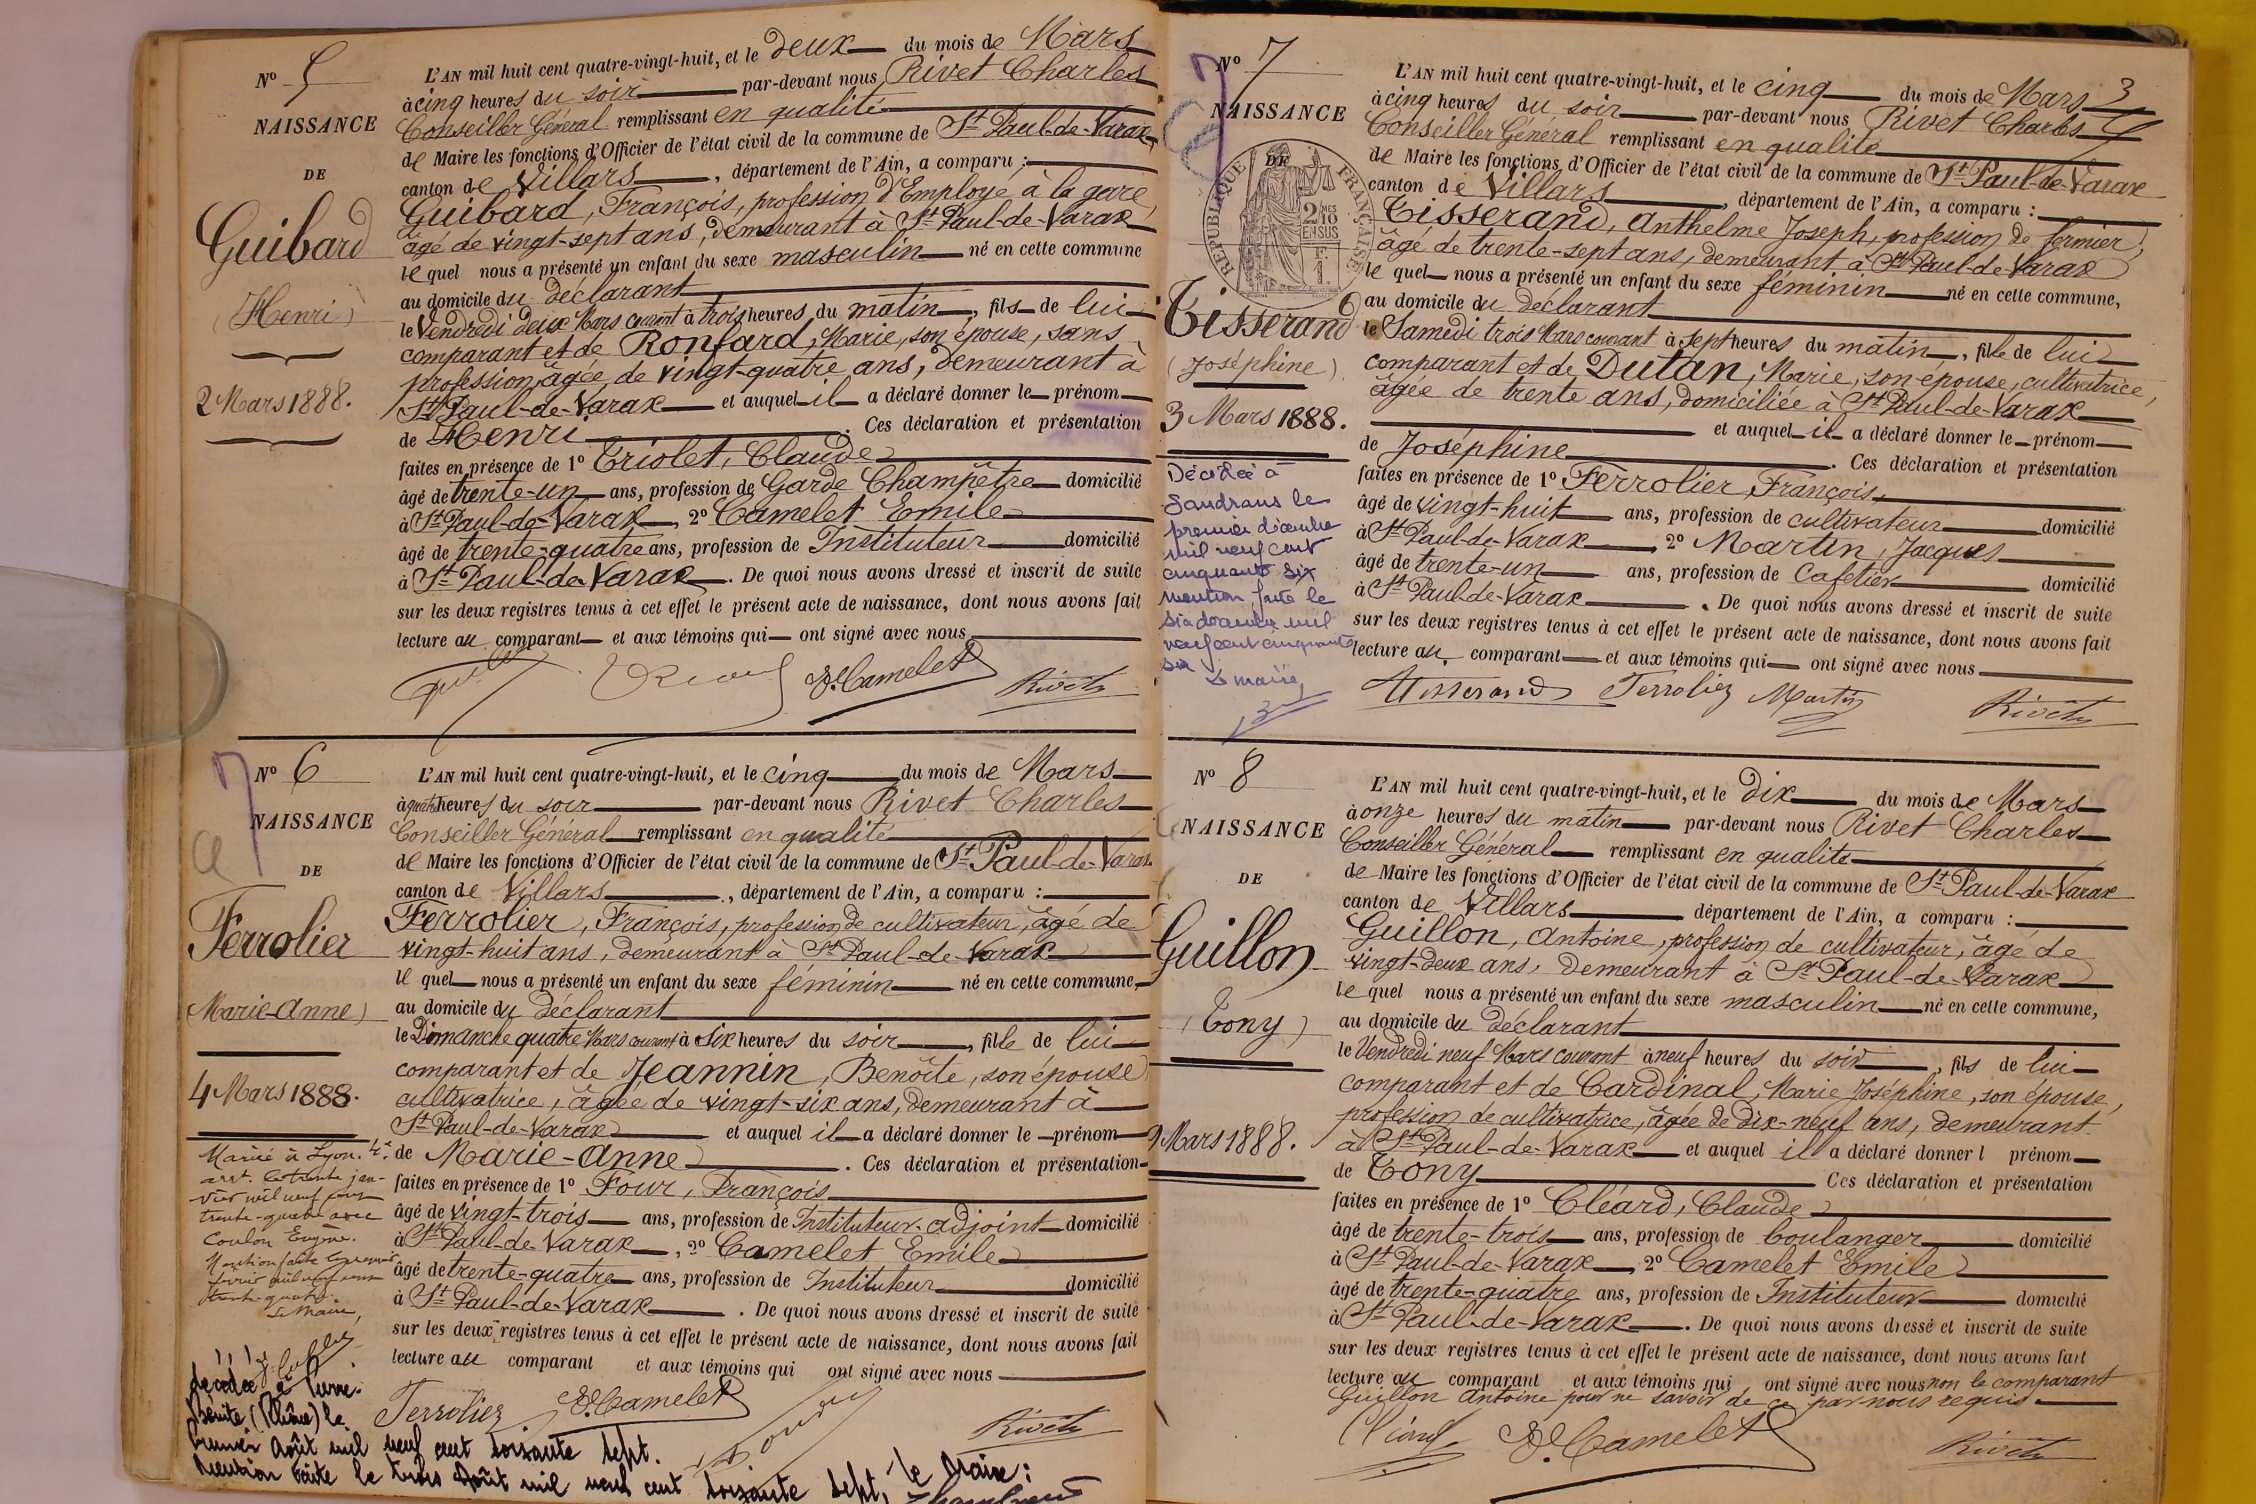 N° 5
NAISSANCE
DE
Guibard
(Henri)
2 Mars 1888.
L'AN mil huit cent quatre-vingt-huit, et le deux du mois de Mars
à cinq heures du soir par-devant nous Rivet Charles
Conseiller Général remplissant en qualité
de Maire les fonctions d'Officier de l'état civil de la commune de St Paul-de-Varax
canton de Villars, département de l'Ain, a comparu :
Guibard, François, profession d'Employé à la gare,
âgé de vingt-sept ans, demeurant à St Paul-de-Varax
lequel nous a présenté un enfant du sexe masculin né en cette commune
au domicile du déclarant
le Vendredi deux Mars courant à trois heures du matin, fils de lui
comparant et de Ronfard, Marie, son épouse, sans
profession, âgée de vingt-quatre ans, demeurant à
St Paul-de-Varax et auquel il a déclaré donner le prénom
de Henri. Ces déclaration et présentation
faites en présence de 1° Triolet, Claude
âgé de trente-un ans, profession de Garde Champêtre domicilié
à St Paul-de-Varax, 2° Camelet Emile
âgé de trente-quatre ans, profession de Instituteur domicilié
à St Paul-de-Varax. De quoi nous avons dressé et inscrit de suite
sur les deux registres tenus à cet effet le présent acte de naissance, dont nous avons fait
lecture au comparant et aux témoins qui ont signé avec nous
E. Camelet Rivet
N° 6
NAISSANCE
DE
Ferrolier
(Marie-Anne)
4 Mars 1888.
Mariée à Lyon. 4e
arrt. le trente jan-
vier mil neuf cent
trente-quatre avec
Coulon Eugène.
Mention faite le premier
février mil neuf cent
trente-quatre.
Le Maire,
décédée à Pierre-
Bénite (Rhône) le
premier Août mil neuf cent soixante sept.
Mention faite le trois Août mil neuf cent soixante sept, le Maire :
L'AN mil huit cent quatre-vingt-huit, et le cinq du mois de Mars
à quatre heures du soir par-devant nous Rivet Charles
Conseiller Général remplissant en qualité
de Maire les fonctions d'Officier de l'état civil de la commune de St Paul-de-Varax
canton de Villars, département de l'Ain, a comparu :
Ferrolier, François, profession de cultivateur, âgé de
vingt-huit ans, demeurant à St Paul-de-Varax
lequel nous a présenté un enfant du sexe féminin né en cette commune,
au domicile du déclarant
le Dimanche quatre Mars courant à six heures du soir, fille de lui
comparant et de Jeannin, Benoîte, son épouse
cultivatrice, âgée de vingt-six ans, demeurant à
St Paul-de-Varax et auquel il a déclaré donner le prénom
de Marie-Anne. Ces déclaration et présentation
faites en présence de 1° Four, François
âgé de vingt-trois ans, profession de Instituteur-adjoint domicilié
à St Paul-de-Varax, 2° Camelet Emile
âgé de trente-quatre ans, profession de Instituteur domicilié
à St Paul-de-Varax. De quoi nous avons dressé et inscrit de suite
sur les deux registres tenus à cet effet le présent acte de naissance, dont nous avons fait
lecture au comparant et aux témoins qui ont signé avec nous
Ferrolier E. Camelet Four Rivet
3
N° 7
NAISSANCE
DE
RÉPUBLIQUE FRANÇAISE
2/10MES
EN SUS
Tisserand
(Joséphine)
3 Mars 1888.
Décédée à
Sandrans le
premier décembre
mil neuf cent
cinquante six
mention faite le
six décembre mil
neuf cent cinquante
six
Le maire
L'AN mil huit cent quatre-vingt-huit, et le cinq du mois de Mars
à cinq heures du soir par-devant nous Rivet Charles
Conseiller Général remplissant en qualité
de Maire les fonctions d'Officier de l'état civil de la commune de St Paul-de-Varax
canton de Villars, département de l'Ain, a comparu :
Tisserand, Anthelme Joseph, profession de fermier,
âgé de trente-sept ans, demeurant à St Paul-de-Varax
lequel nous a présenté un enfant du sexe féminin né en cette commune,
au domicile du déclarant
le Samedi trois Mars courant à sept heures du matin, fille de lui
comparant et de Dutan, Marie, son épouse, cultivatrice,
âgée de trente ans, domiciliée à St Paul-de-Varax
et auquel il a déclaré donner le prénom
de Joséphine. Ces déclaration et présentation
faites en présence de 1° Ferrolier, François,
âgé de vingt-huit ans, profession de cultivateur domicilié
à St Paul-de-Varax, 2° Martin, Jacques
âgé de trente-un ans, profession de Cafetier domicilié
à St Paul-de-Varax. De quoi nous avons dressé et inscrit de suite
sur les deux registres tenus à cet effet le présent acte de naissance, dont nous avons fait
lecture au comparant et aux témoins qui ont signé avec nous
Tisserand Ferrolier Martin Rivet
N° 8
NAISSANCE
DE
Guillon
(Tony)
9 Mars 1888.
L'AN mil huit cent quatre-vingt-huit, et le dix du mois de Mars
à onze heures du matin par-devant nous Rivet Charles
Conseiller Général remplissant en qualité
de Maire les fonctions d'Officier de l'état civil de la commune de St Paul-de-Varax
canton de Villars département de l'Ain, a comparu :
Guillon, Antoine, profession de cultivateur, âgé de
vingt-deux ans, demeurant à St Paul-de-Varax
lequel nous a présenté un enfant du sexe masculin né en cette commune,
au domicile du déclarant
le Vendredi neuf Mars courant à neuf heures du soir, fils de lui
comparant et de Cardinal, Marie Joséphine, son épouse,
profession de cultivatrice, âgée de dix-neuf ans, demeurant
à St Paul-de-Varax et auquel il a déclaré donner l prénom
de Tony Ces déclaration et présentation
faites en présence de 1° Cléard, Claude
âgé de trente-trois ans, profession de boulanger domicilié
à St Paul-de-Varax, 2° Camelet Emile
âgé de trente-quatre ans, profession de Instituteur domicilié
à St Paul-de-Varax. De quoi nous avons dressé et inscrit de suite
sur les deux registres tenus à cet effet le présent acte de naissance, dont nous avons fait
lecture au comparant et aux témoins qui ont signé avec nous non le comparant
Guillon Antoine pour ne savoir de ce par nous requis.
E. Camelet Rivet